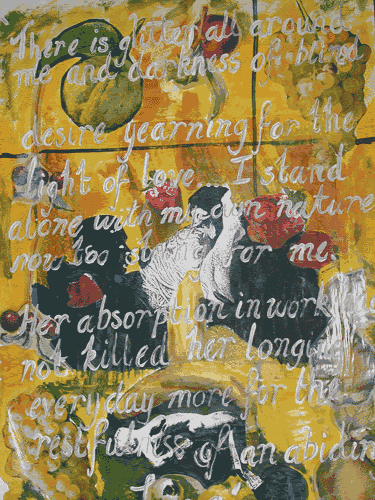 There is glitter all around
me and darkness of blind
desire yearning for the
light of love I stand
alone with my own nature
now too strong for me.
Her absorption in work
not killed her longing
everyday more for the
restfulness of an abiding